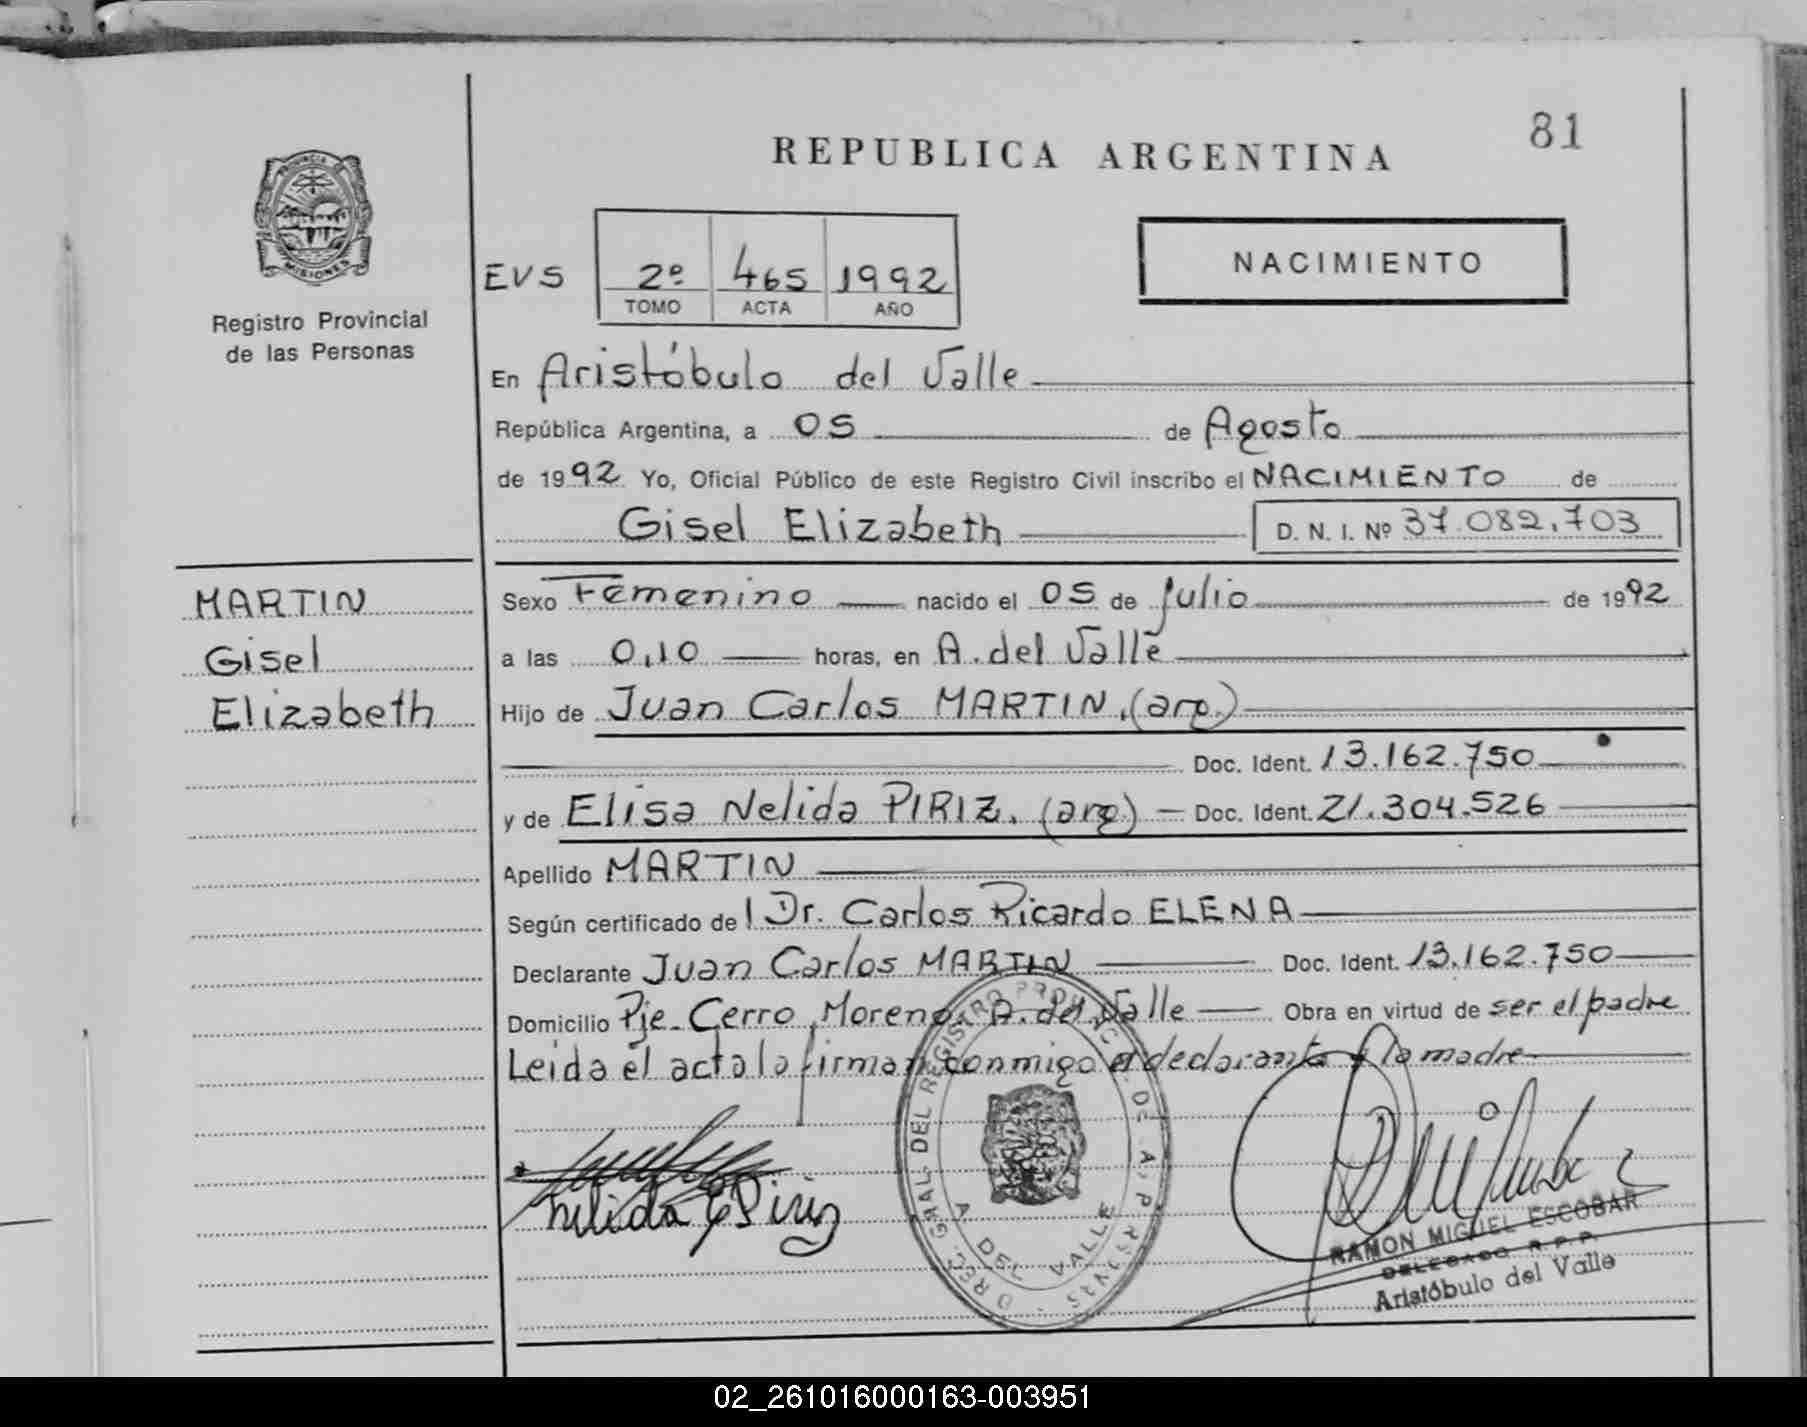 81
REPUBLICA ARGENTINA
PROVINCIA DE
MISIONES
Registro Provincial
de las Personas
EVS 2º 465 1992
TOMO ACTA AÑO
NACIMIENTO
En Aristóbulo del Valle
República Argentina, a 05 de Agosto
de 1992 Yo, Oficial Público de este Registro Civil inscribo el NACIMIENTO de
Gisel Elizabeth D. N. I. Nº 37.082.703
MARTIN
Gisel
Elizabeth
Sexo Femenino nacido el 05 de Julio de 1992
a las 0,10 horas, en A. del Valle
Hijo de Juan Carlos MARTIN. (arg.)
Doc. Ident. 13.162.750
y de Elisa Nelida PIRIZ. (arg) Doc. Ident. 21.304.526
Apellido MARTIN
Según certificado del Dr. Carlos Ricardo ELENA
Declarante Juan Carlos MARTIN Doc. Ident. 13.162.750
Domicilio Pje. Cerro Moreno. A. del Valle Obra en virtud de ser el padre
Leida el acta la firman conmigo el declarante y la madre
Nelida E Piriz
DIREC. GRAL. DEL REGISTRO PROVINC. DE LAS PERSONAS
A. DEL VALLE
RAMON MIGUEL ESCOBAR
DELEGADO R.P.P.
Aristóbulo del Valle
02_261016000163-003951